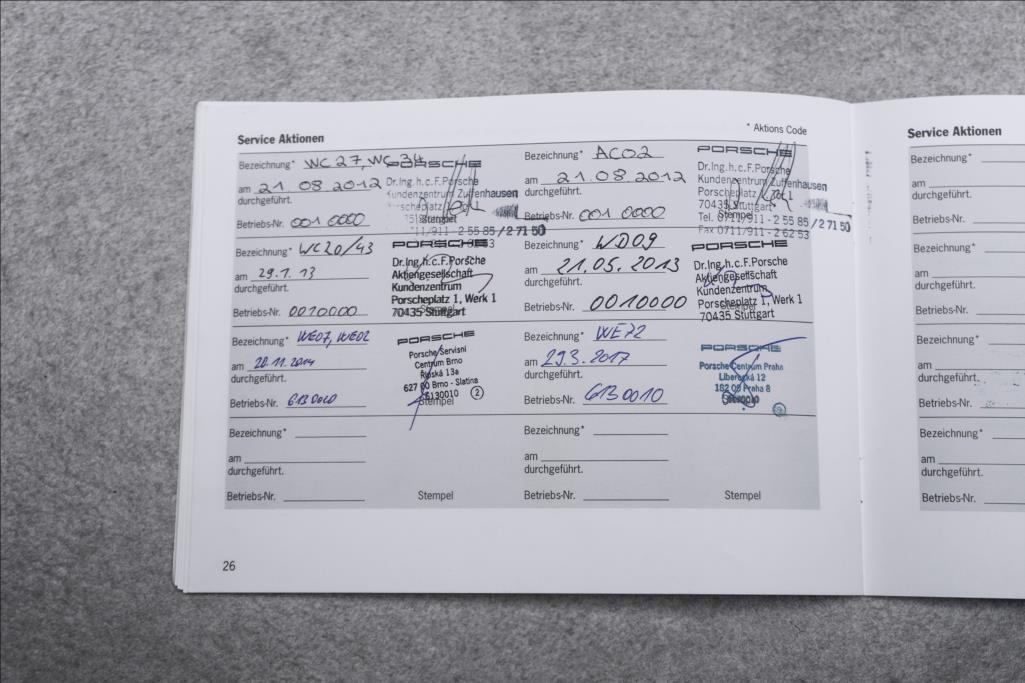 Service Aktionen
* Aktions Code
Bezeichnung* WC 27, WC 34
am 21 08 2012
durchgeführt.
Betriebs-Nr. 001 0000
PORSCHE
Dr.Ing.h.c.F.Porsche
Kundenzentrum Zuffenhausen
Porscheplatz
Stempel
0711/911 - 2 55 85 / 2 71 50
Bezeichnung* AC02
am 21.08.2012
durchgeführt.
Betriebs-Nr. 001 0000
PORSCHE
Dr.Ing.h.c.F.Porsche
Kundenzentrum Zuffenhausen
Porscheplatz
70435 Stuttgart
Stempel
Tel. 0711/911 - 2 55 85 / 2 71 50
Fax 0711/911 - 2 62 53
Bezeichnung* WC20/43
am 29.1.13
durchgeführt.
Betriebs-Nr. 0010000
PORSCHE
Dr.Ing.h.c.F.Porsche
Aktiengesellschaft
Kundenzentrum
Porscheplatz 1, Werk 1
70435 Stuttgart
Stempel
Bezeichnung* WD09
am 21.05.2013
durchgeführt.
Betriebs-Nr. 0010000
PORSCHE
Dr.Ing.h.c.F.Porsche
Aktiengesellschaft
Kundenzentrum
Porscheplatz 1, Werk 1
Stempel
70435 Stuttgart
Bezeichnung* WE07, WE02
am 20.11.2014
durchgeführt.
Betriebs-Nr. 6130010
PORSCHE
Porsche Servisni
Centrum Brno
Řipská 13a
627 00 Brno - Slatina
6130010 2
Stempel
Bezeichnung* WE72
am 29.3.2017
durchgeführt.
Betriebs-Nr. 6130010
PORSCHE
Porsche Centrum Praha
Liberecká 12
182 00 Praha 8
Bezeichnung*
am
durchgeführt.
Betriebs-Nr.
Stempel
Bezeichnung*
am
durchgeführt.
Betriebs-Nr.
Stempel
26
Service Aktionen
Bezeichnung*
am
durchgeführt.
Betriebs-Nr.
Bezeichnung*
am
durchgeführt.
Betriebs-Nr.
Bezeichnung*
am
durchgeführt.
Betriebs-Nr.
Bezeichnung*
am
durchgeführt.
Betriebs-Nr.